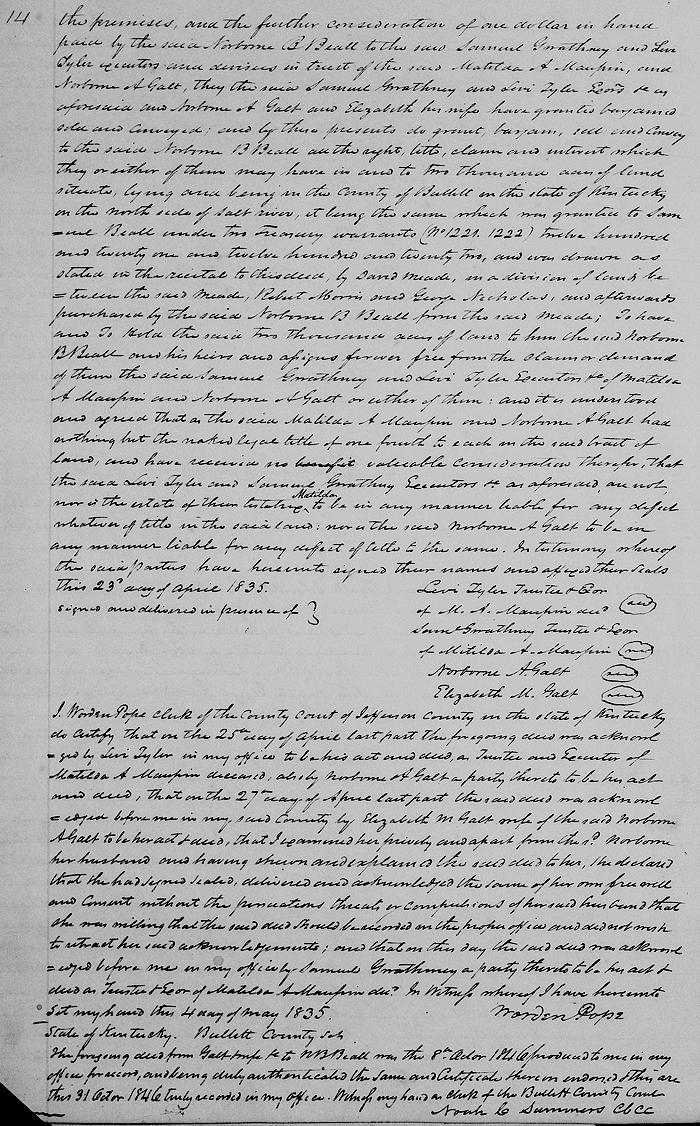 14
the premises, and the further consideration of one dollar in hand
paid by the said Norborne B Beall to the said Samuel Gwathney and Levi
Tyler executors and devisees in trust of the said Matilda A Maupin, and
Norborne A Galt, they the said Samuel Gwathney and Levi Tyler Exors &c as
aforesaid and Norborne A Galt and Elizabeth his wife have granted bargained
sold and conveyed; and by these presents do grant, bargain, sell and convey
to the said Norborne B Beall all the right, title, claim and interest which
they or either of them may have in and to two thousand acres of land
situate, lying and being in the County of Bullitt in the state of Kentucky
on the north side of salt river, it being the same which was granted to Sam
=uel Beall under two Treasury warrants (No 1221. 1222) twelve hundred
and twenty one and twelve hundred and twenty two, and was drawn as
stated in the recital to this deed, by David Meade, in a division of lands be
=tween the said Meade, Robert Morris and George Nicholas, and afterwards
purchased by the said Norborne B Beall from the said Meade; To have
and To Hold the said two thousand acres of land to him the said Norborne
B Beall and his heirs and assigns forever free from the claim or demand
of them the said Samuel Gwathney and Levi Tyler Executors &c of Matilda
A Maupin and Norborne A Galt or either of them: and it is understood
and agreed that as the said Matilda A Maupin and Norborne A Galt had
nothing but the naked legal title of one fourth to each in the said tract of
land, and have received no benefit valuable consideration therefor, that
the said Levi Tyler and Samuel Gwathney Executors &c as aforesaid, are not,
nor is the estate of their testatrix Matilda to be in any manner liable for any defect
whatever of title in the said land: nor is the said Norborne A Galt to be in
any manner liable for any defect of title to the same. In testimony whereof
the said parties have hereunto signed their names and affixed their seals
this 23d day of April 1835.
Levi Tyler Trustee & Exor
signed and delivered in presence of }
of M. A. Maupin decd seal
Saml Gwathney Trustee & Exor
of Matilda A. Maupin seal
Norborne A. Galt seal
Elizabeth M. Galt seal
I. Worden Pope clerk of the County Court of Jefferson County in the state of Kentucky
do certify that on the 25th day of April last past the foregoing deed was acknowl
=edged by Levi Tyler in my office to be his act and deed, as Trustee and Executor of
Matilda A Maupin deceased, also by Norborne A Galt a party thereto to be his act
and deed, that on the 27th day of April last past the said deed was acknowl
=edged before me in my said County by Elizabeth M Galt wife of the said Norborne
A Galt to be her act & deed, that I examined her privily and apart from the sd Norborne
her husband and having shewn and explained the said deed to her, she declared
that she had signed sealed, delivered and acknowledged the same of her own free will
and consent without the persuations threats or compulsions of her said husband that
she was willing that the said deed should be recorded in the proper office and did not wish
to retract her said acknowledgements; and that on this day the said deed was acknowl
=edged before me in my office by Samuel Gwathney a party thereto to be his act &
deed as Trustee & Exor of Matilda A Maupin decd In Witness whereof I have hereunto
set my hand this 4 day of May 1835. Worden Pope
State of Kentucky. Bullitt County Sct
The foregoing deed from Galt & wife &c to N B Beall was the 8th Octor 1846 produced to me in my
office for record, and being duly authenticated the same and certificate thereon endorsed & this are
this 31 Octor 1846 truly recorded in my office. Witness my hand as clerk of the Bullitt County Court
Noah C Summers CBCC